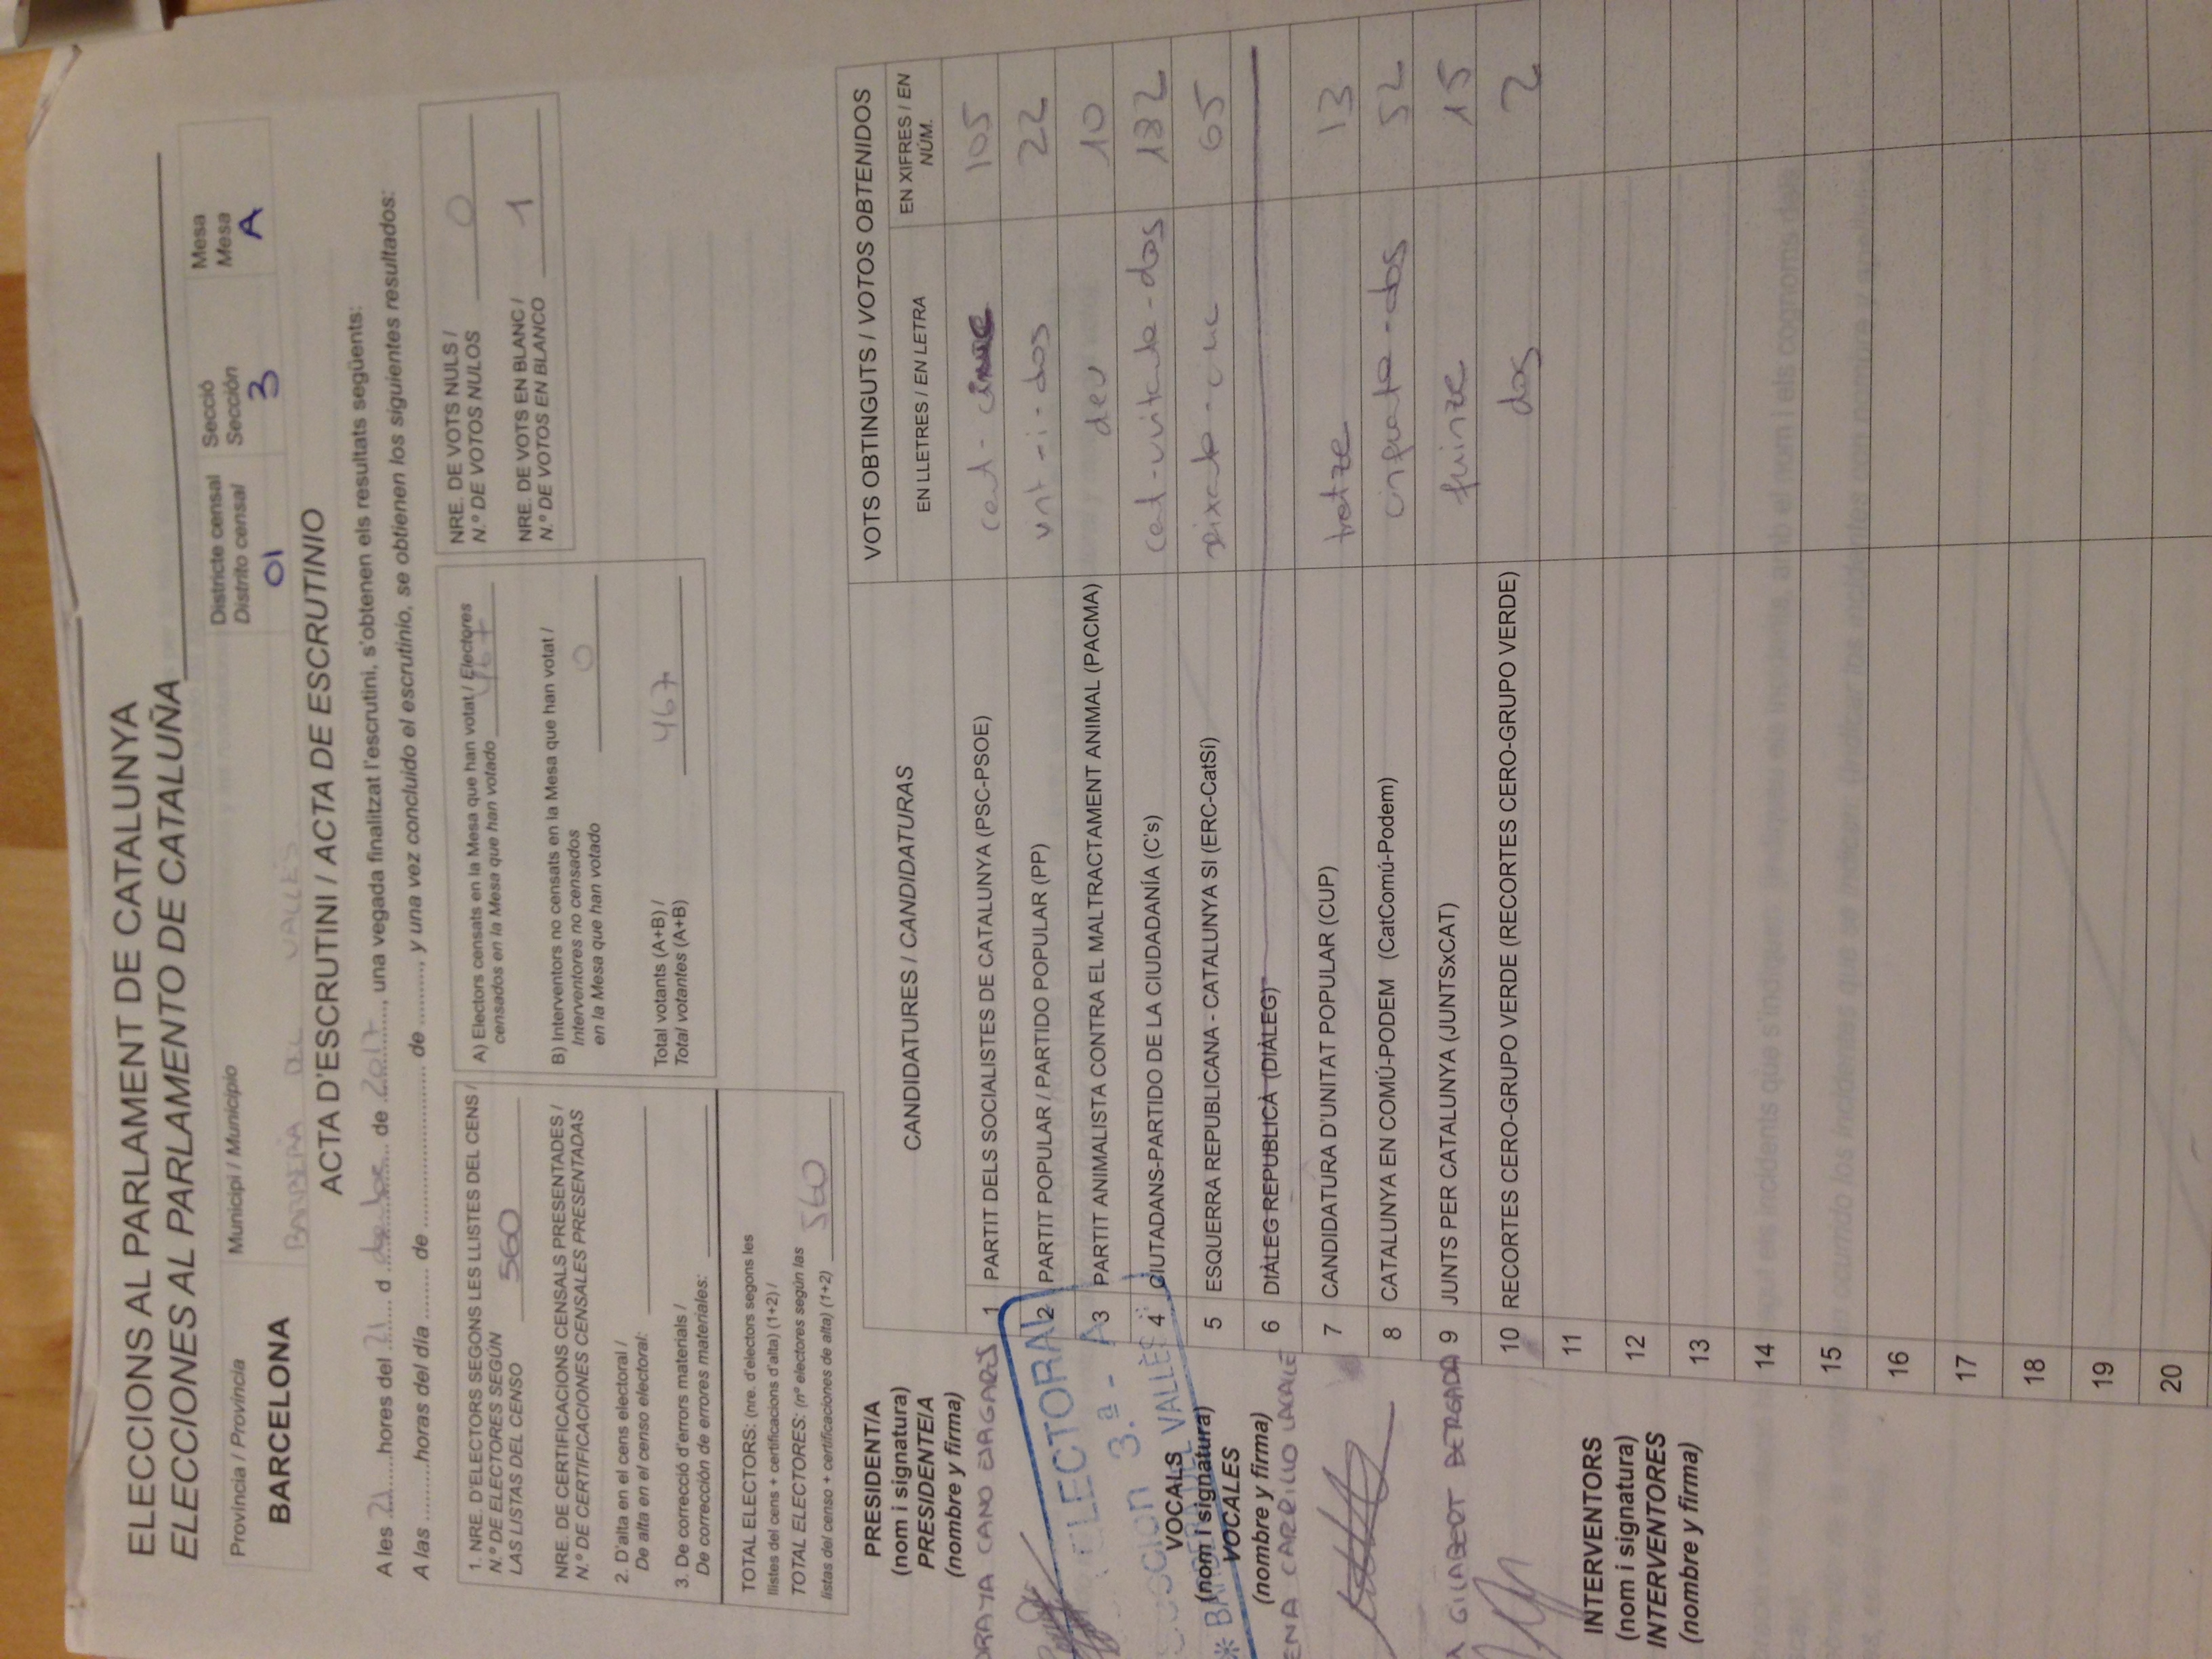 ELECCIONS AL PARLAMENT DE CATALUNYA
ELECCIONES AL PARLAMENTO DE CATALUÑA
Província / Provincia
BARCELONA
Municipi / Municipio
BARBERA DEL VALLES
Districte censal
Distrito censal
01
Secció
Sección
3
Mesa
Mesa
A
ACTA D'ESCRUTINI / ACTA DE ESCRUTINIO
A les 21 hores del 21 d de 2017, una vegada finalitzat l'escrutini, s'obtenen els resultats següents:
A las .........horas del día ........ de ......................... de ........., y una vez concluido el escrutinio, se obtienen los siguientes resultados:
1. NRE. D'ELECTORS SEGONS LES LLISTES DEL CENS /
N.º DE ELECTORES SEGÚN
LAS LISTAS DEL CENSO 560
NRE. DE CERTIFICACIONS CENSALS PRESENTADES /
N.º DE CERTIFICACIONES CENSALES PRESENTADAS
2. D'alta en el cens electoral /
De alta en el censo electoral:
3. De correcció d'errors materials /
De corrección de errores materiales:
TOTAL ELECTORS: (nre. d'electors segons les
llistes del cens + certificacions d'alta) (1+2) /
TOTAL ELECTORES: (nº electores según las
listas del censo + certificaciones de alta) (1+2) 560
A) Electors censats en la Mesa que han votat / Electores
censados en la Mesa que han votado 467
B) Interventors no censats en la Mesa que han votat /
Interventores no censados
en la Mesa que han votado 0
Total votants (A+B) /
Total votantes (A+B) 467
NRE. DE VOTS NULS /
N.º DE VOTOS NULOS 0
NRE. DE VOTS EN BLANC /
N.º DE VOTOS EN BLANCO 1
PRESIDENT/A
(nom i signatura)
PRESIDENTE/A
(nombre y firma)
ORAYA CANO
ELECTORAL
3.ª - A
BARBERA DEL VALLÈS
VOCALS
(nom i signatura)
VOCALES
(nombre y firma)
ENA CARRILLO LACALLE
GILABERT BERGADA
INTERVENTORS
(nom i signatura)
INTERVENTORES
(nombre y firma)
CANDIDATURES / CANDIDATURAS
VOTS OBTINGUTS / VOTOS OBTENIDOS
EN LLETRES / EN LETRA
EN XIFRES / EN NÚM.
1 PARTIT DELS SOCIALISTES DE CATALUNYA (PSC-PSOE) cent-cinc 105
2 PARTIT POPULAR / PARTIDO POPULAR (PP) vint-i-dos 22
3 PARTIT ANIMALISTA CONTRA EL MALTRACTAMENT ANIMAL (PACMA) deu 10
4 CIUTADANS-PARTIDO DE LA CIUDADANÍA (C's) cent-vuitanta-dos 182
5 ESQUERRA REPUBLICANA - CATALUNYA SI (ERC-CatSí) seixanta-cinc 65
6 DIÀLEG REPUBLICÀ (DIÀLEG)
7 CANDIDATURA D'UNITAT POPULAR (CUP) tretze 13
8 CATALUNYA EN COMÚ-PODEM (CatComú-Podem) cinquanta-dos 52
9 JUNTS PER CATALUNYA (JUNTSxCAT) quinze 15
10 RECORTES CERO-GRUPO VERDE (RECORTES CERO-GRUPO VERDE) dos 2
11
12
13
14
15
16
17
18
19
20